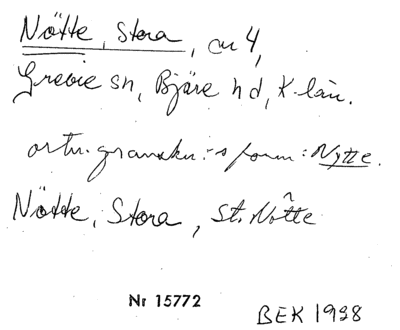 Nötte, Stora, cu 4,
Grevie sn, Bjäre hd, K-län.
ortn.granskn:s form: Nytte.
Nötte, Stora, St. Nôtte
Nr 15772
BEK 1998